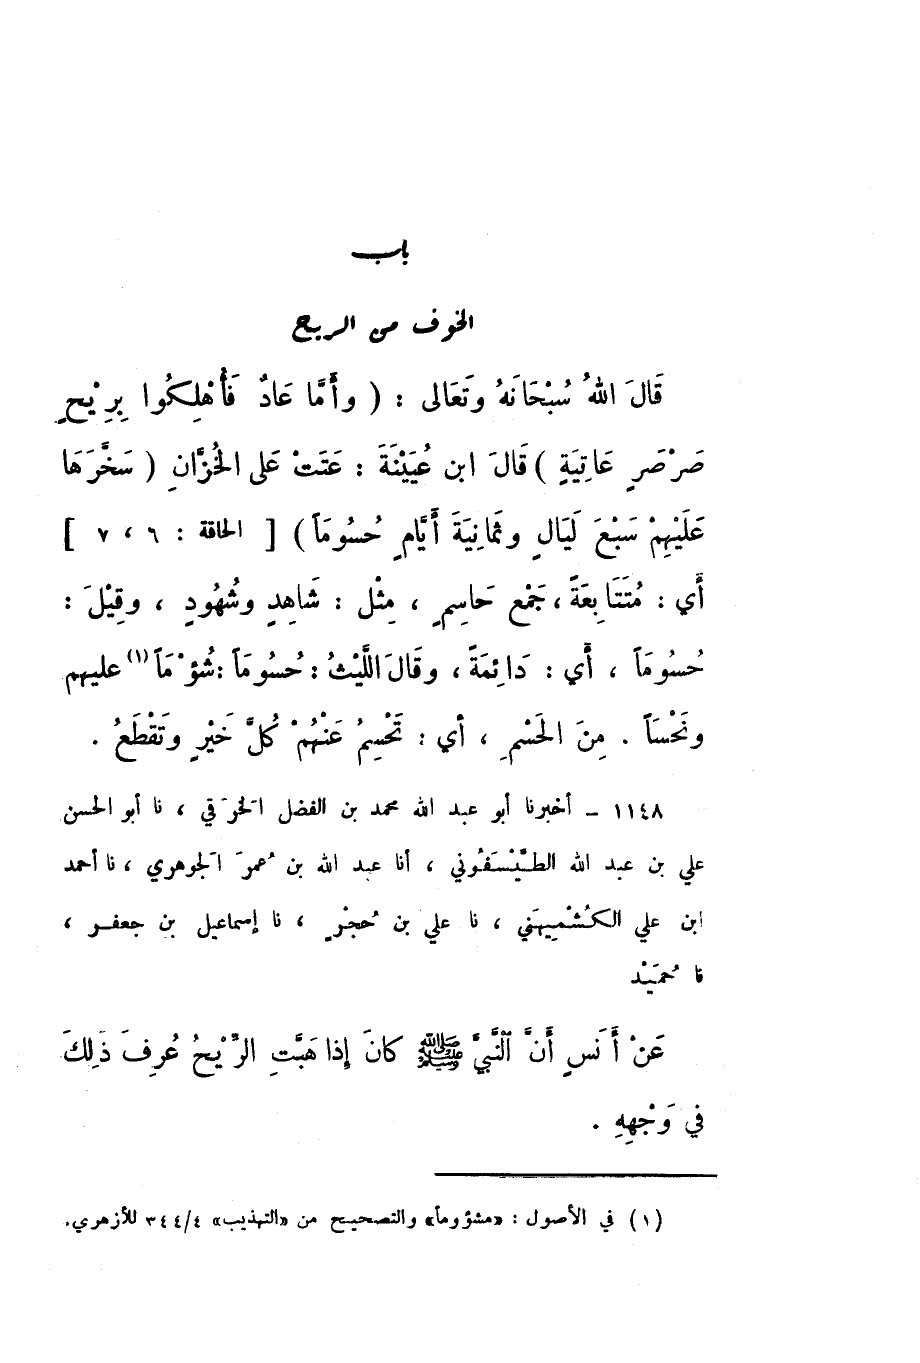 باب
الخوف من الريح
قَالَ اللهُ سُبْحَانَهُ وَتَعَالى : ( وأَمَّا عَادٌ فَأُهْلِكُوا بِرِيْحٍ
صَرْصَرٍ عَاتِيَةٍ ) قَالَ ابن عُيَيْنَةَ : عَتَتْ عَلى الخُزَّانِ ( سَخَّرَهَا
عَلَيْهِمْ سَبْعَ لَيَالٍ وثَمانِيَةَ أَيَّامٍ حُسُومَاً ) [ الحاقة : ٦ ، ٧ ]
أَي : مُتَتَابِعَةً ، جَمْع حَاسِمٍ ، مِثْل : شَاهِدٍ وشُهُودٍ ، وقِيْلَ :
حُسُومَاً ، أَي : دَائِمَةً ، وقَالَ اللَّيْثُ : حُسُومَاً : شُؤْمَاً (١) عليهم
ونَحْسَاً . مِنَ الحَسْمِ ، أي : تَحْسِمُ عَنْهُمْ كُلَّ خَيْرٍ وتَقْطَعُ .
١١٤٨ - أخبرنا أبو عبد الله محمد بن الفضل الخَرَقي ، نا أبو الحسن
علي بن عبد الله الطَّيْسَفُوني ، أنا عبد الله بن عُمرَ الجوهري ، نا أحمد
ابن علي الكُشْمِيهَني ، نا علي بن حُجْرٍ ، نا إسماعيل بن جعفر ،
نا حُمَيْد
عَنْ أَنَسٍ أَنَّ النَّبيَّ ﷺ كَانَ إِذا هَبَّتِ الرِّيْحُ عُرِفَ ذَلِكَ
في وَجْهِهِ .
(١) في الأصول : «مشؤوماً» والتصحيح من «التهذيب» ٣٤٤/٤ للأزهري.